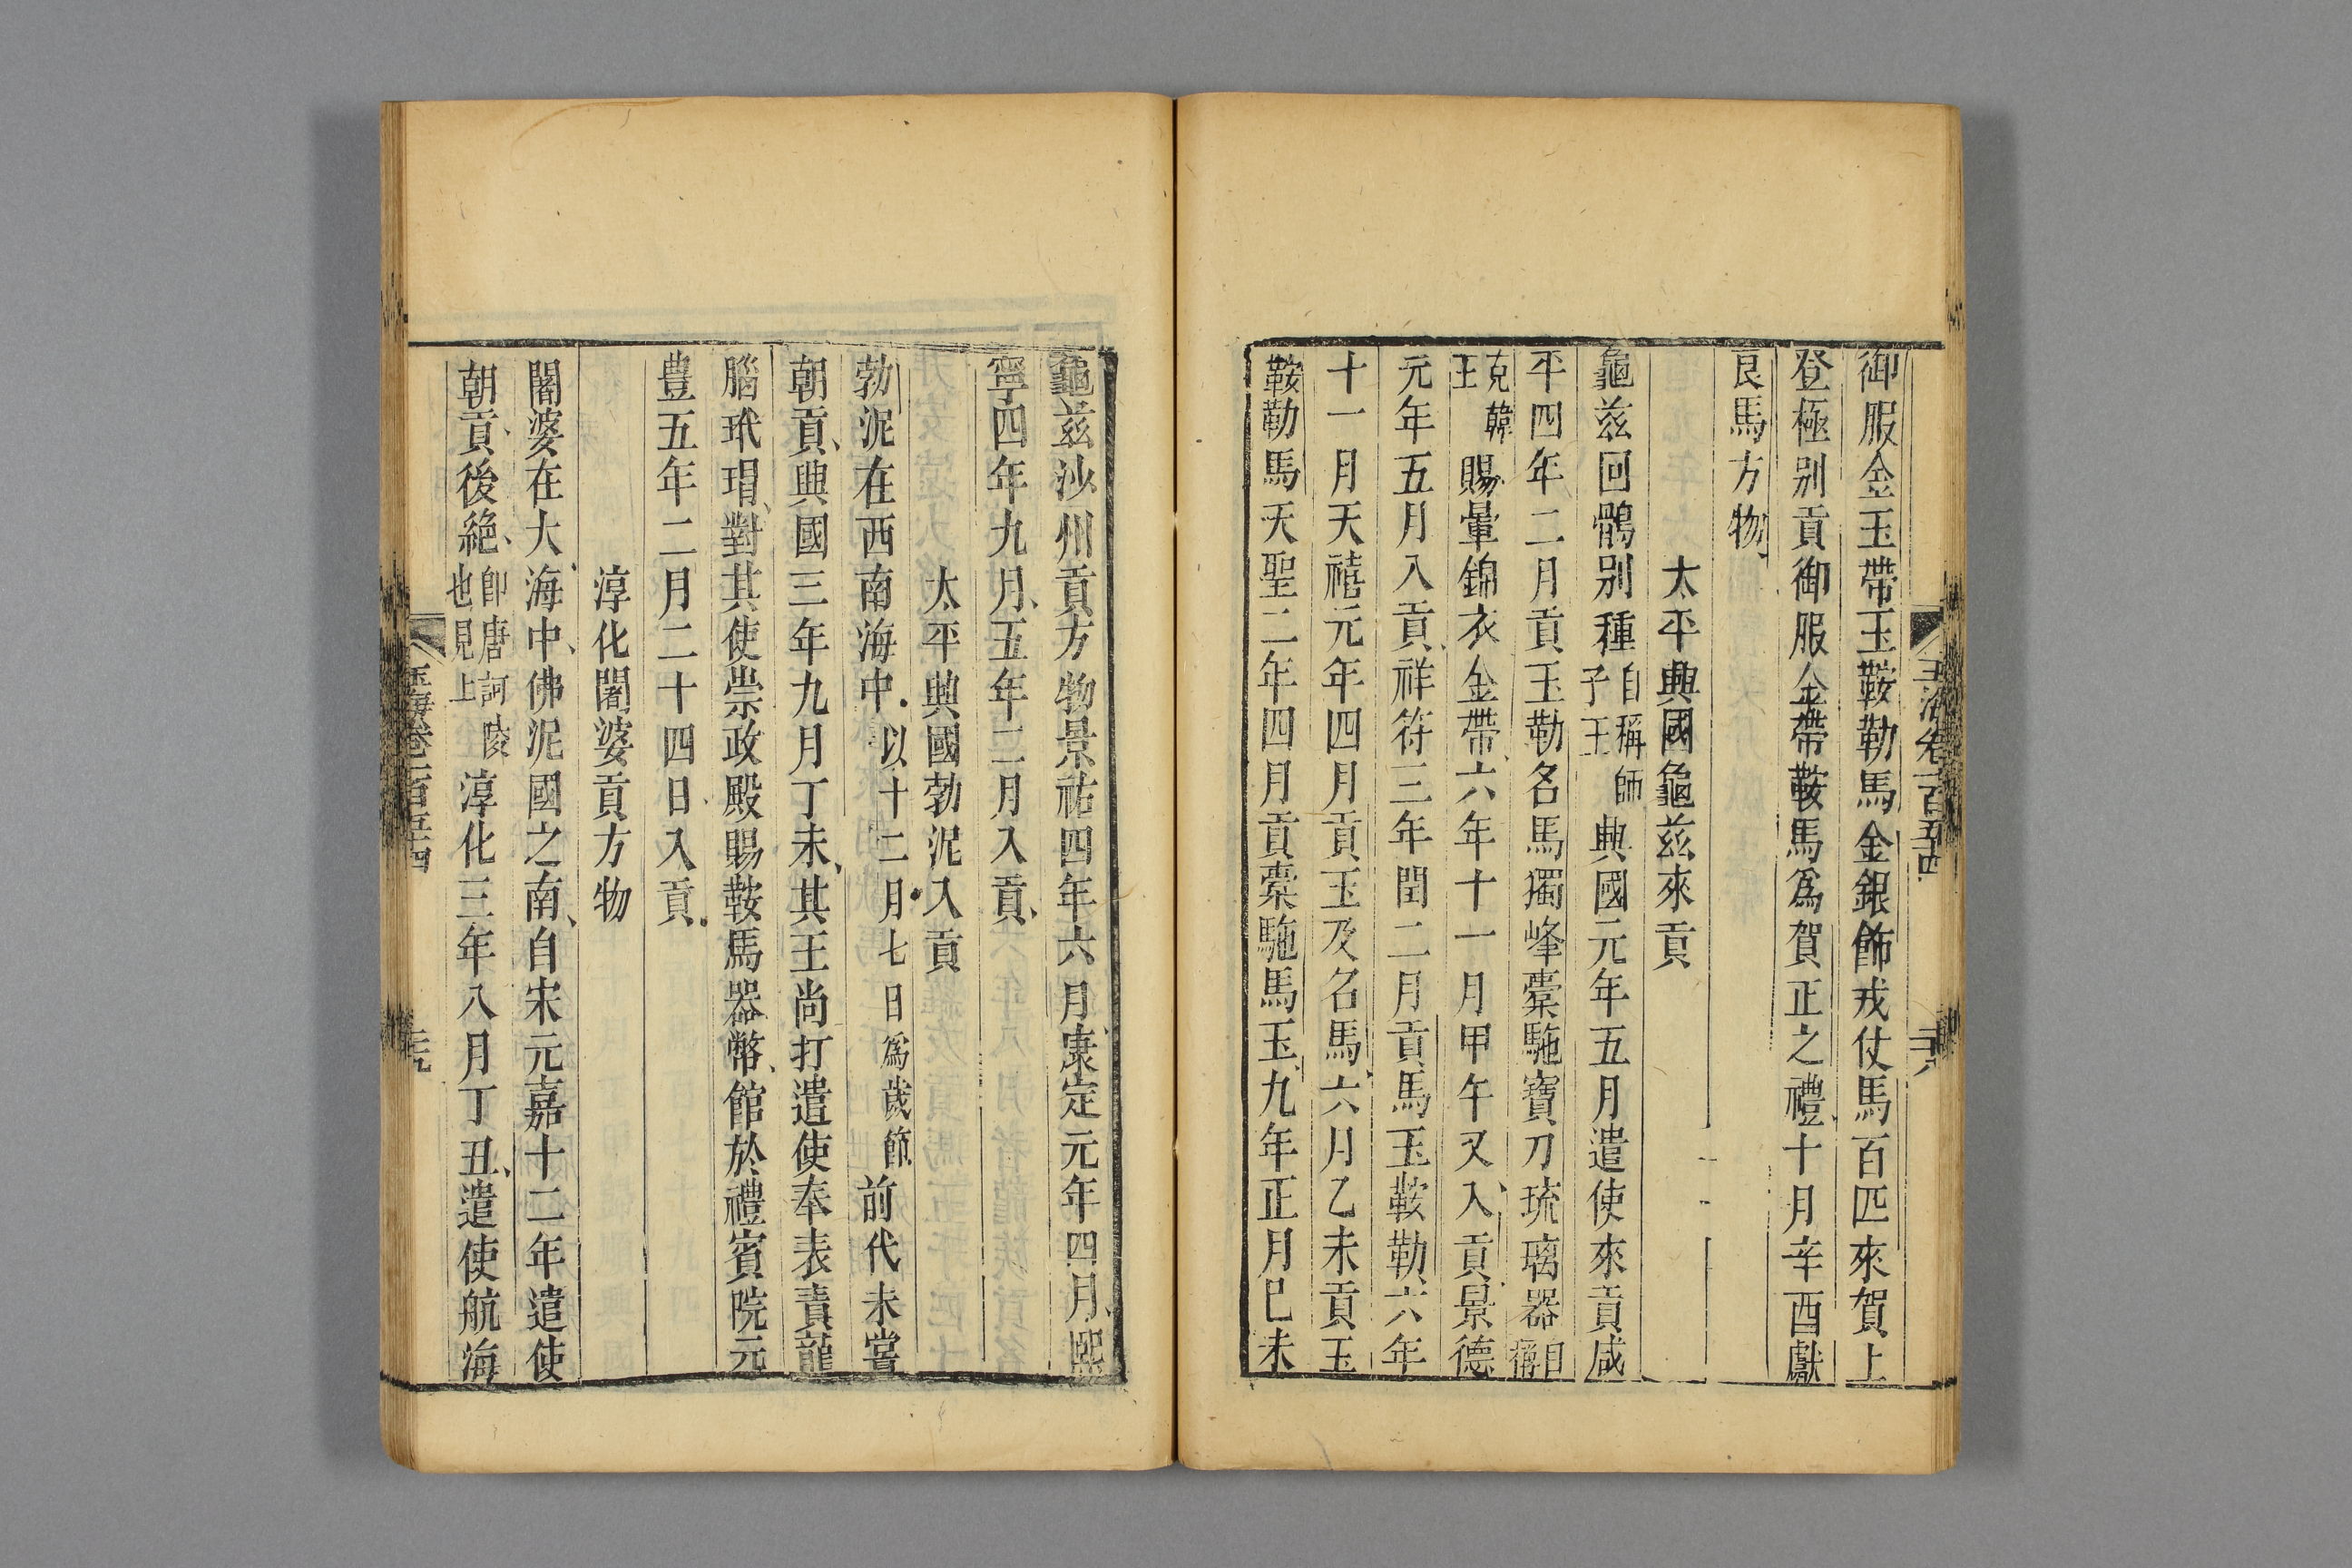 玉海卷一百五十四
二十八
御服金玉帶玉鞍勒馬金銀飾戎仗馬百匹來賀上
登極别貢御服金帶鞍馬爲賀正之禮十月辛酉獻
良馬方物
太平興國龜茲來貢
龜茲回鶻别種自稱師子王興國元年五月遣使來貢咸
平四年二月貢玉勒名馬獨峰橐駞寶刀琉璃器自稱
克韓王賜暈錦衣金帶六年十一月甲午又入貢景德
元年五月入貢祥符三年閏二月貢馬玉鞍勒六年
十一月天禧元年四月貢玉及名馬六月乙未貢玉
鞍勒馬天聖二年四月貢橐駞馬玉九年正月巳未
龜茲沙州貢方物景祐四年六月康定元年四月熙
寧四年九月五年二月入貢
太平興國勃泥入貢
勃泥在西南海中以十二月七日爲歲節前代未嘗
朝貢興國三年九月丁未其王尚打遣使奉表賫龍
腦玳瑁對其使崇政殿賜鞍馬器幣館於禮賓院元
豊五年二月二十四日入貢
淳化闍婆貢方物
闍婆在大海中佛泥國之南自宋元嘉十二年遣使
朝貢後絶卽唐訶陵也見上淳化三年八月丁丑遣使航海
玉海卷一百五十四
二十九